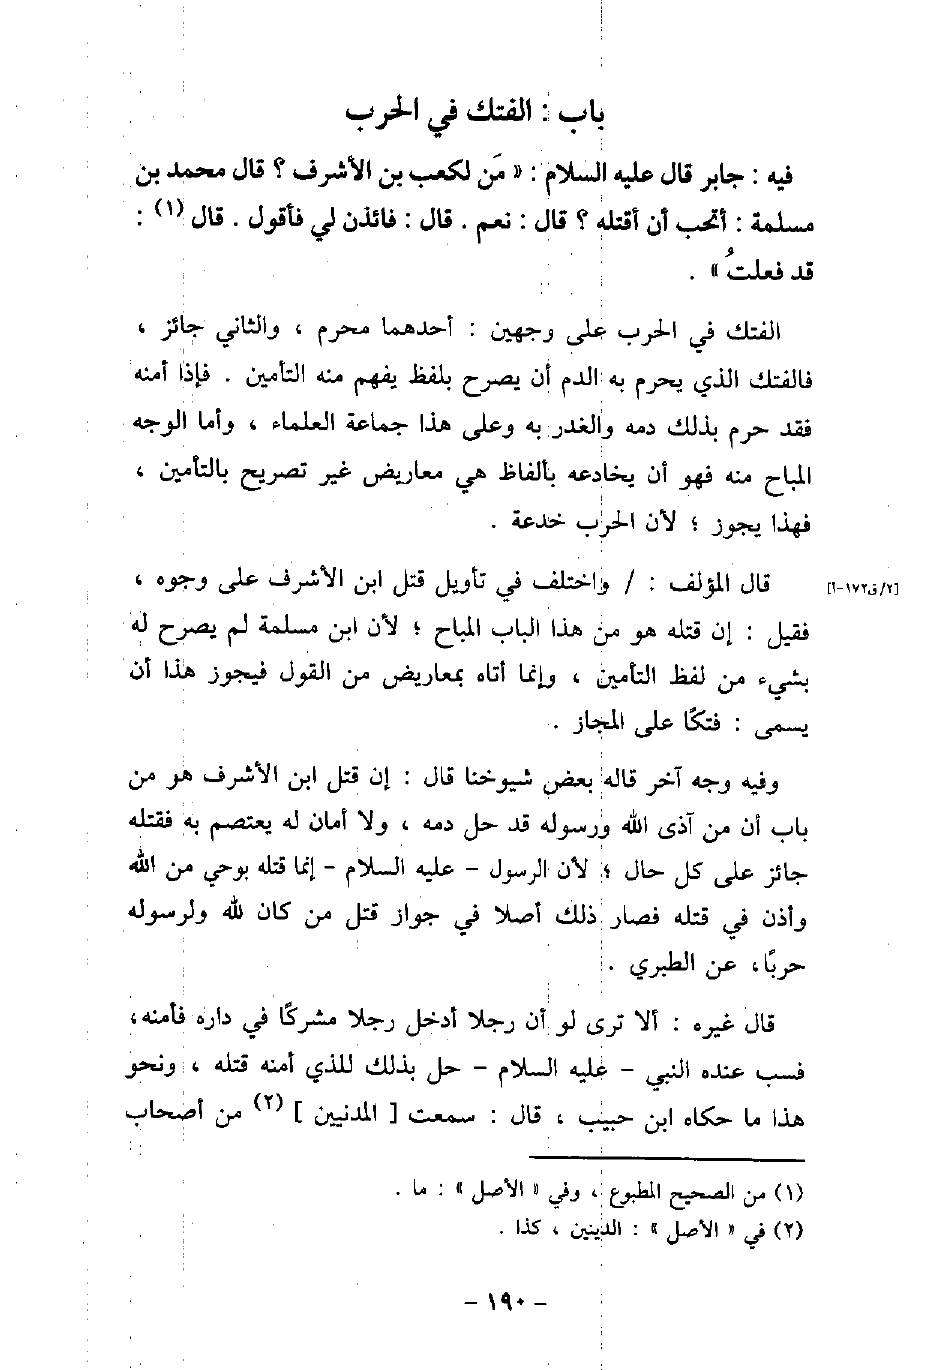 باب : الفتك في الحرب
فيه : جابر قال عليه السلام : « مَن لكعب بن الأشرف ؟ قال محمد بن
مسلمة : أتحب أن أقتله ؟ قال : نعم . قال : فائذن لي فأقول . قال (١) :
قد فعلتُ » .
الفتك في الحرب على وجهين : أحدهما محرم ، والثاني جائز ،
فالفتك الذي يحرم به الدم أن يصرح بلفظ يفهم منه التأمين . فإذا أمنه
فقد حرم بذلك دمه والغدر به وعلى هذا جماعة العلماء ، وأما الوجه
المباح منه فهو أن يخادعه بألفاظ هي معاريض غير تصريح بالتأمين ،
فهذا يجوز ؛ لأن الحرب خدعة .
قال المؤلف : / واختلف في تأويل قتل ابن الأشرف على وجوه ،
[٢/ق١٧٢-أ]
فقيل : إن قتله هو من هذا الباب المباح ؛ لأن ابن مسلمة لم يصرح له
بشيء من لفظ التأمين ، وإنما أتاه بمعاريض من القول فيجوز هذا أن
يسمى : فتكًا على المجاز .
وفيه وجه آخر قاله بعض شيوخنا قال : إن قتل ابن الأشرف هو من
باب أن من آذى الله ورسوله قد حل دمه ، ولا أمان له يعتصم به فقتله
جائز على كل حال ؛ لأن الرسول - عليه السلام - إنما قتله بوحي من الله
وأذن في قتله فصار ذلك أصلا في جواز قتل من كان لله ولرسوله
حربًا، عن الطبري .
قال غيره : ألا ترى لو أن رجلا أدخل رجلا مشركًا في داره فأمنه،
فسب عنده النبي - عليه السلام - حل بذلك للذي أمنه قتله ، ونحو
هذا ما حكاه ابن حبيب ، قال : سمعت [ المدنيين ] (٢) من أصحاب
(١) من الصحيح المطبوع ، وفي « الأصل » : ما .
(٢) في « الأصل » : الدينين ، كذا .
- ١٩٠ -